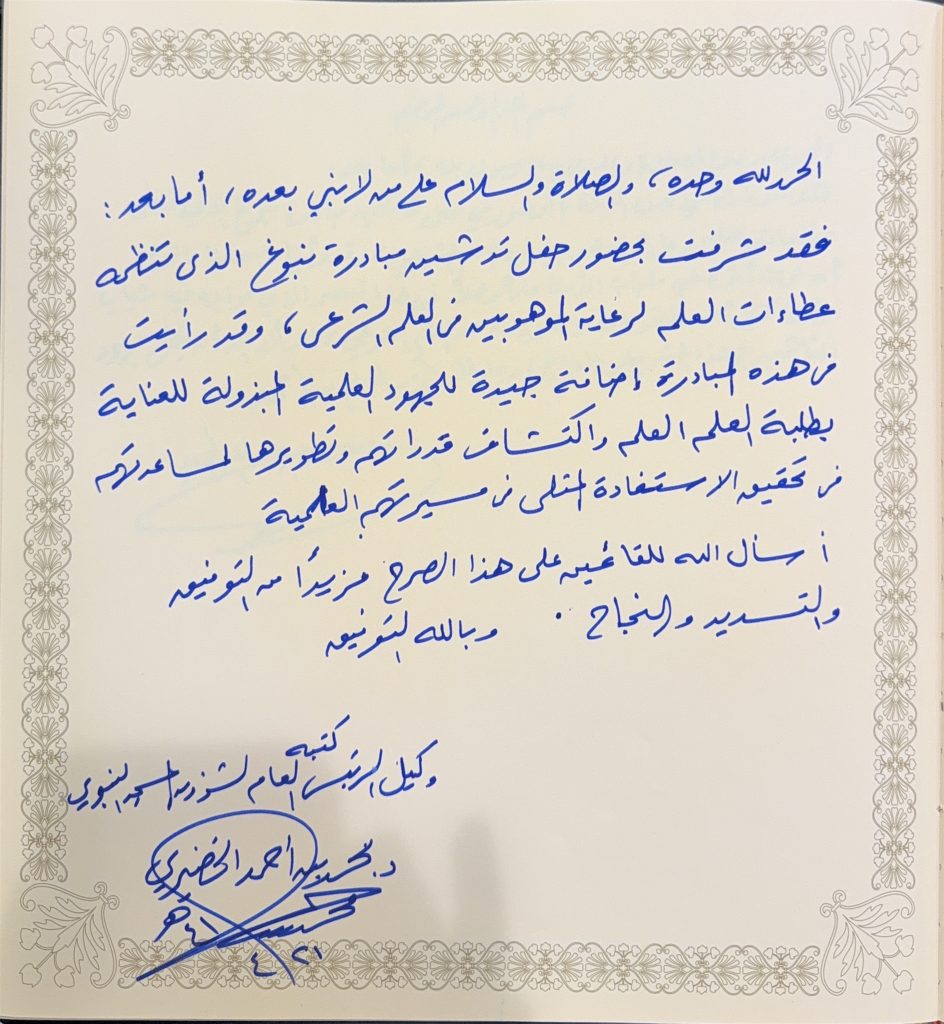 الحمد لله وحده، والصلاة والسلام على من لا نبي بعده، أما بعد:
فقد شرفت بحضور حفل تدشين مبادرة نبوغ الذي تنظمه
عطاءات العلم لرعاية الموهوبين في العلم الشرعي، وقد رأيت
في هذه المبادرة إضافة جيدة للجهود العلمية المبذولة للعناية
بطلبة العلم العلم واكتشاف قدراتهم وتطويرها لمساعدتهم
في تحقيق الاستفادة المثلى في مسيرتهم العلمية
أسأل الله للقائمين على هذا الصرح مزيدًا من التوفيق
والتسديد والنجاح . وبالله التوفيق
كتبه
وكيل الرئيس العام لشؤون المسجد النبوي
د. محمد بن أحمد الخضيري
٢١ ٤ ٤١هـ